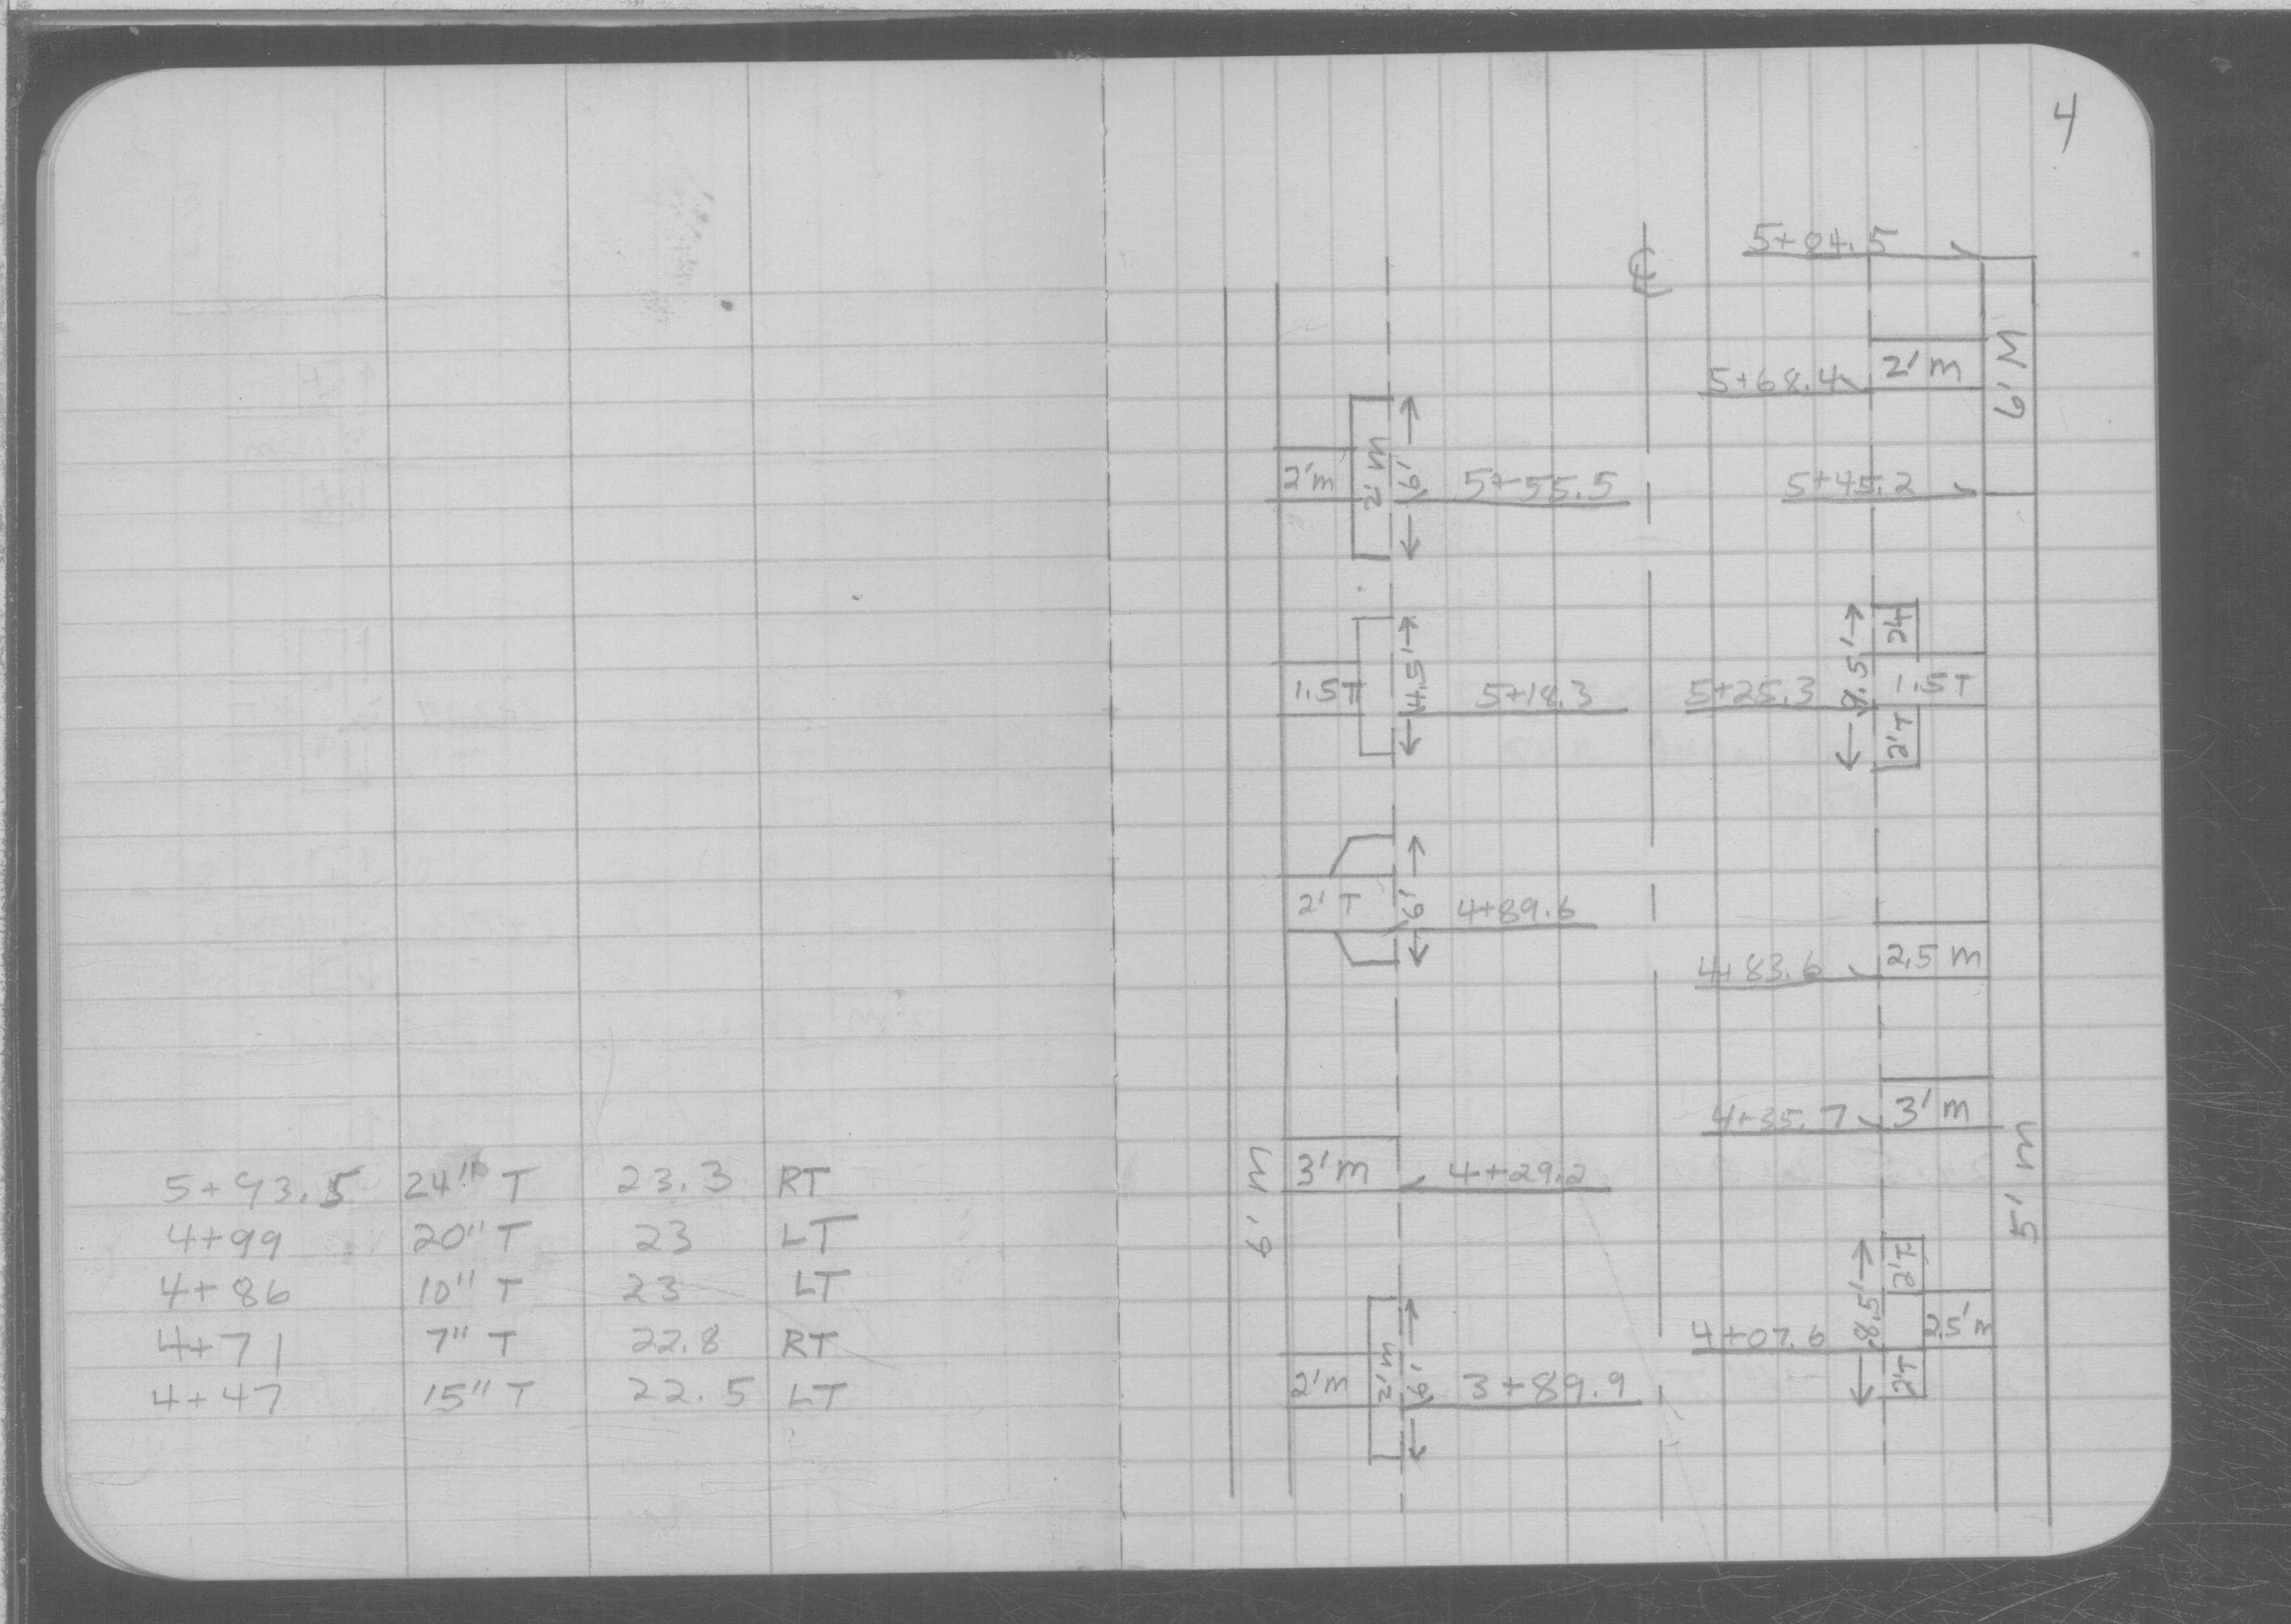 4
5+93.5 24" T 23.3 RT
4+99 20" T 23 LT
4+86 10" T 23 LT
4+71 7" T 22.8 RT
4+47 15" T 22.5 LT
℄
5+84.5
5+68.4 2' m
6' M
2'm 2' m 6' 5+55.5
5+45.2
1.5T 4.5' 5+18.3
5+25.3 8.5' 1.5T 2'T
2' T 6' 4+89.6
4+83.6 2.5 m
4+35.7 3' m
6' m 3'm 4+29.2
5' m
4+07.6 8.5' 2'T 2.5'm 2'T
2'm 2'm 6' 3+89.9